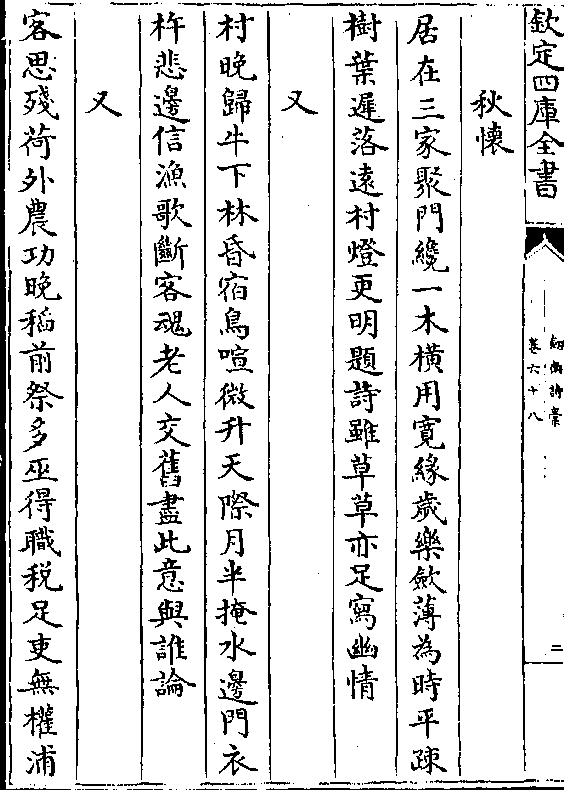 欽定四庫全書
劍南詩稾
卷六十八
二
秋懷
居在三家聚門纔一木橫用寛緣歲樂斂薄為時平疎
樹葉遲落遠村燈更明題詩雖草草亦足寫幽情
又
村晚歸牛下林昏宿鳥喧微升天際月半掩水邊門衣
杵悲邊信漁歌斷客魂老人交舊盡此意與誰論
又
客思殘荷外農功晚稻前祭多巫得職税足吏無權浦